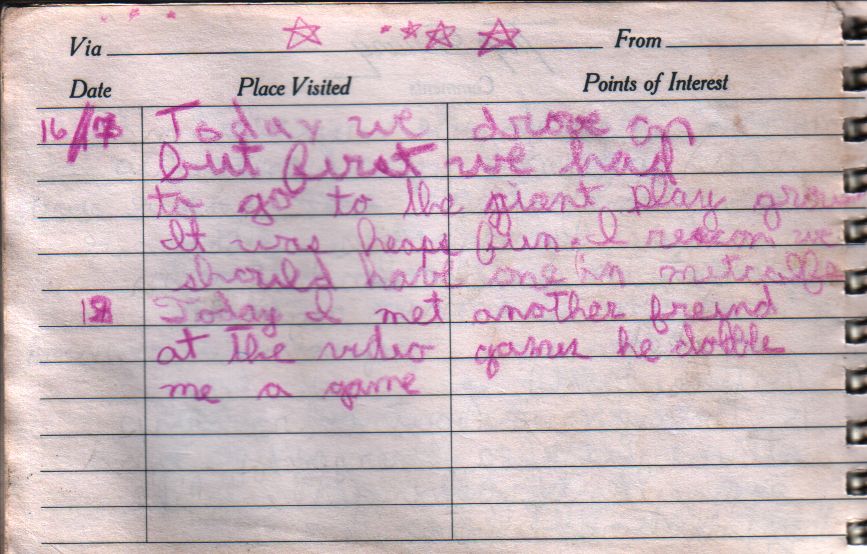 Via From
Date Place Visited Points of Interest
16/17 Today we drove on
but first we had
to go to the giant play grou
It was heaps fun. I reckon we
should have one in metcalfe
Today I met another freind
at the video games he dobble
me a game